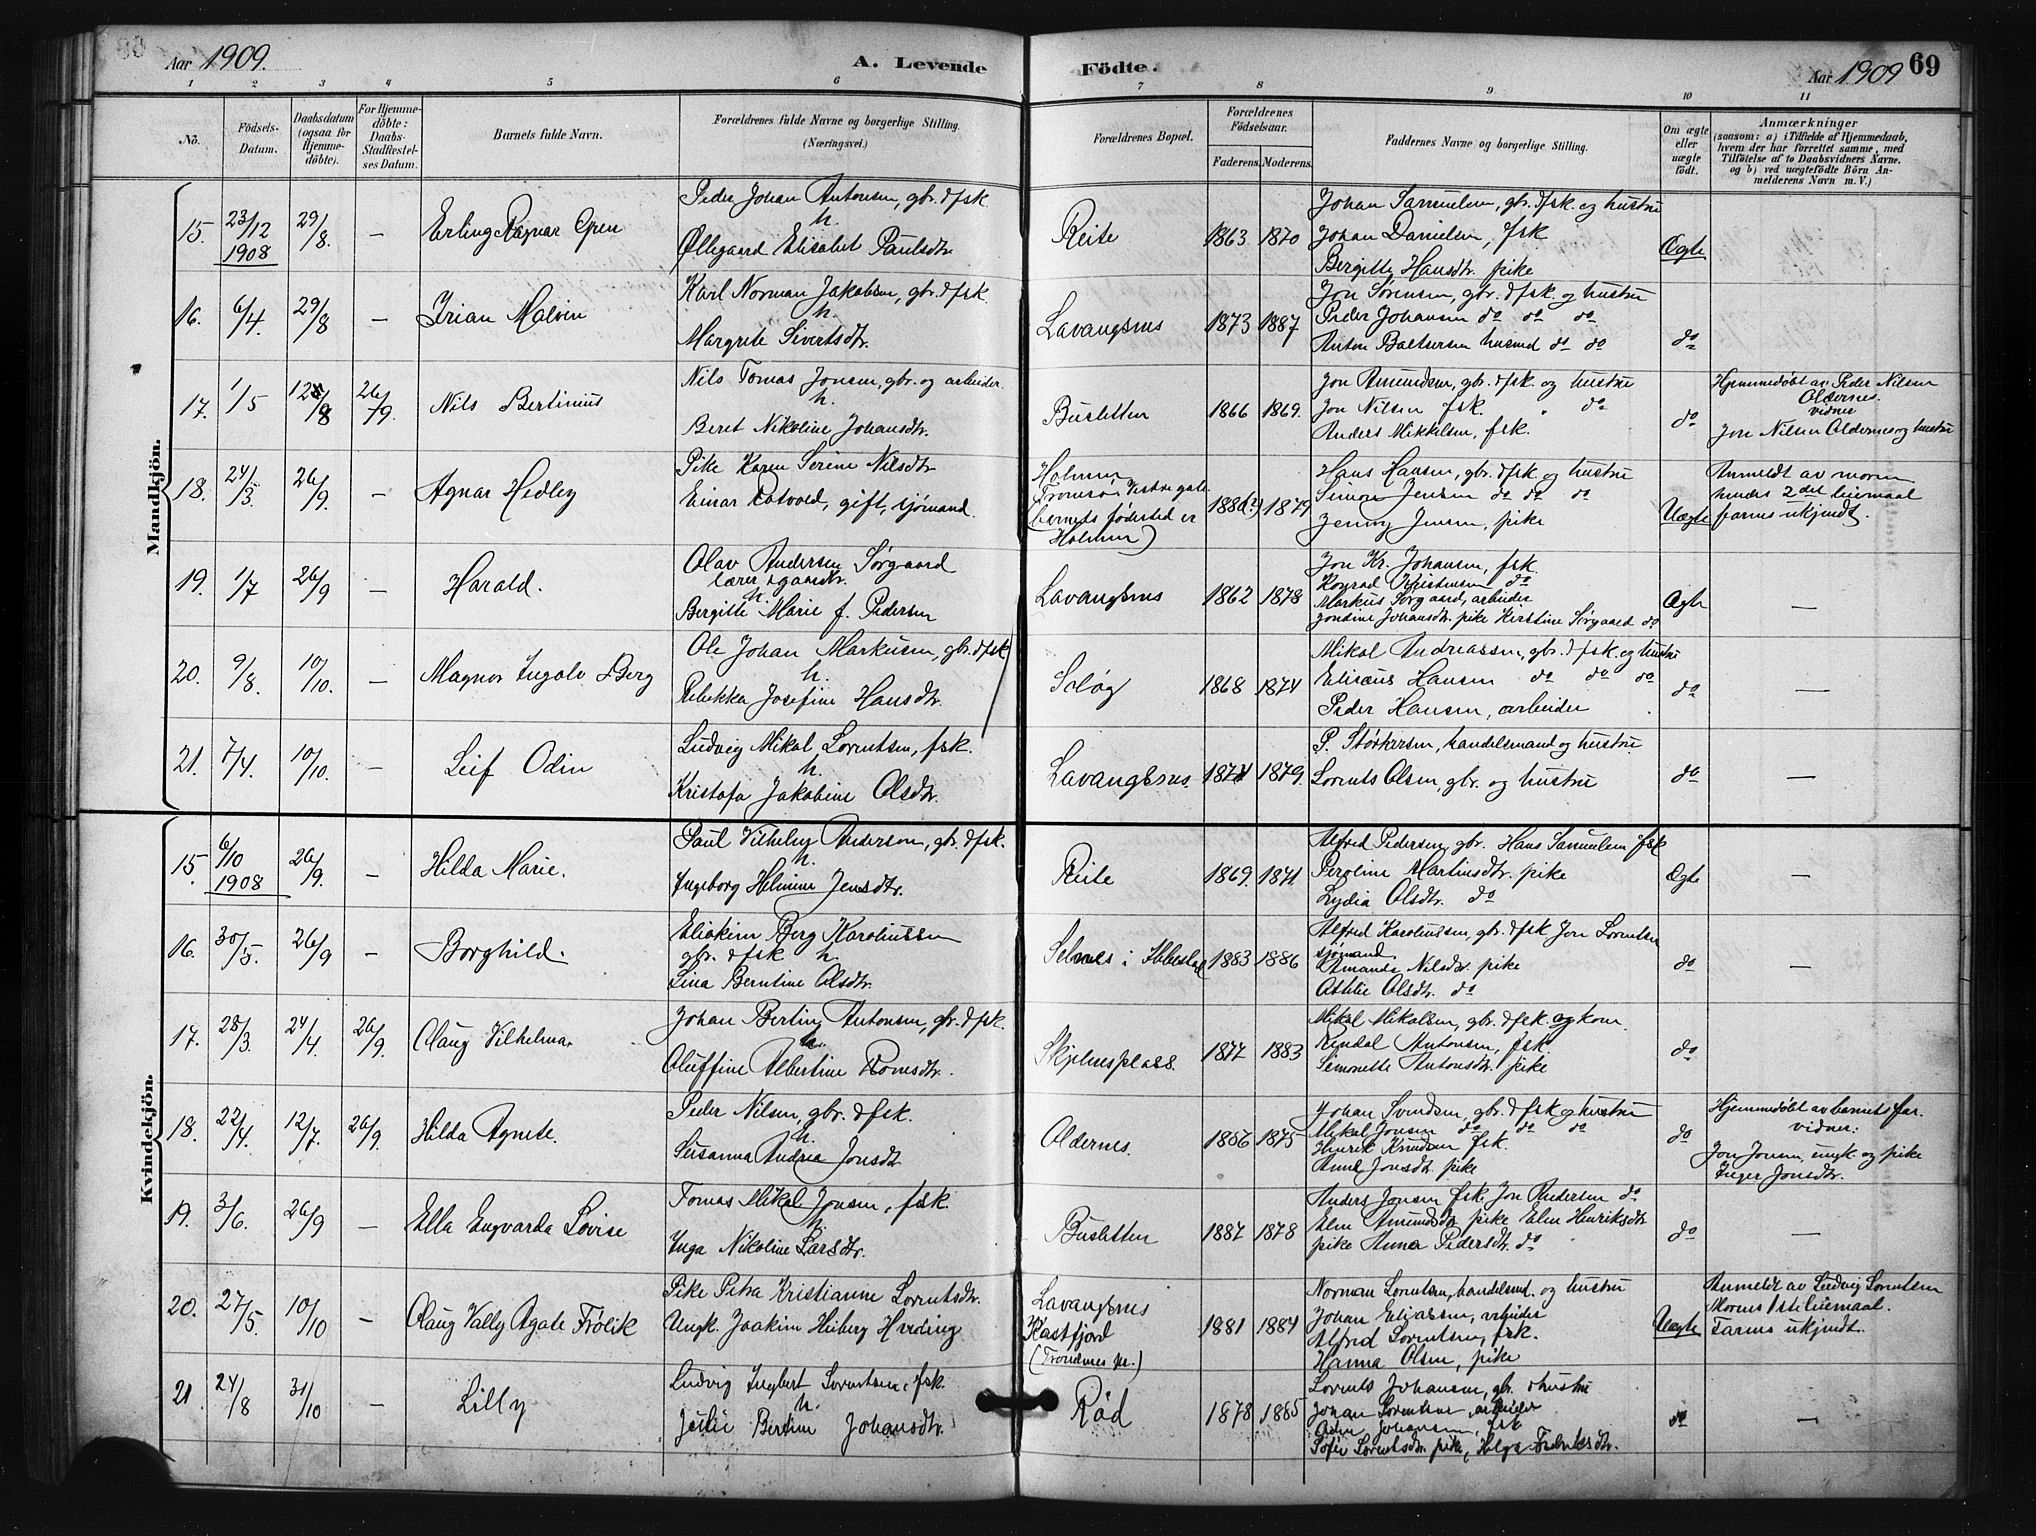 Aar 1909.
A. Levende
Födte.
Aar 1909
69
1 2 3 4 5 6 7 8 9 10 11
No.
Födsels-Datum.
Daabsdatum (ogsaa for Hjemme-döbte).
For Hjemme-döbte: Daabs-Stadfæstel-ses Datum.
Barnets fulde Navn.
Forældrenes fulde Navne og borgerlige Stilling.
(Næringsvei.)
Forældrenes Bopæl.
Forældrenes Födselsaar.
Faderens. Moderens.
Faddernes Navne og borgerlige Stilling.
Om ægte eller uægte födt.
Anmærkninger
(saasom: a) i Tilfælde af Hjemmedaab,
hvem der har forrettet samme, med
Tilföielse af to Daabsvidners Navne,
og b) ved uægtefödte Börn An-
melderens Navn m. V.)
Mandkjön.
15. 23/12 1908 29/8. — Erling Ragnar Gren
Peder Johan Antonsen, gbr. & fsk.
h.
Øllegaard Elisabet Paulsdtr.
Reite 1863 1870
Johan Samuelsen, gbr. & fsk. og hustru
Johan Danielsen, fsk
Bergitte Hansdtr. pike
Ægte
16. 6/4. 29/8 — Irian Malvin
Karl Norman Jakobsen, gbr. & fsk.
h.
Margrete Sivertsdtr.
Lavangsnes 1873 1887
Jon Sørensen, gbr. & fsk. og hustru
Peder Johansen do do do
Anton Baltsersen husmd do do
do
17. 1/5 /8 26/9. Nils Bertinius
Nils Tomas Jonsen, gbr. og arbeider.
h.
Beret Nikoline Johansdtr.
Busletten 1866 1869.
Jon Amundsen, gbr. & fsk. og hustru
Jon Nilsen fsk. " do
Anders Mikkelsen, fsk.
do
Hjemmedøbt av Peder Nilsen
Oldernes.
vidner
Jon Nilsen Oldernes og hustru
18. 24/3 26/9. — Agnar Hedley
Pike Karen Serine Nilsdtr
Einar, gift, sjømand.
Holmen,
Tromsø Vestregate
(barnets fødested er
Holmen)
1879
Hans Hansen, gbr. & fsk. og hustru
Simon Jensen do do do
Jenny Jensen, pike
Uægte
Anmeldt av moren
hendes 2det leiemaal
farens ukjendt.
19. 1/7 26/9 — Harald.
Olav Andersen Sørgaard
lærer & gaardbr.
h.
Bergitte Marie f. Pedersen
Lavangsnes 1862 1878
Jon Kr. Johansen, fsk.
Konrad Kristensen do
Markus Sørgaard, arbeider
Jondine Johansdtr. pike Kirstine Sørgaard do
Ægte —
20. 9/8. 10/10. — Magnor Ingolv Berg
Ole Johan Markusen, gbr. & fsk
h.
Rebekka Josefine Hansdtr.
Soløg 1868 1874
Mikal Andreassen, gbr. & fsk og hustru
Elisæus Hansen do do do
Peder Hansen, arbeider
do —
21. 7/4. 10/10. — Leif Odin
Ludvig Mikal Lorentsen, fsk.
h.
Kristofa Jakobine Olsdtr.
Lavangsnes. 1879.
P. Størkersen, handelsmand og hustru
Lorents Olsen, gbr. og hustru
do —
Kvindekjön.
15. 6/10 1908 26/9. — Hilda Marie.
Paul Vilhelm Andersen, gbr. & fsk.
h.
Ingeborg Helmine Jensdtr.
Reite 1869. 1871.
Alfred Pedersen, gbr. Hans Samuelsen fsk
Peroline Martinsdtr. pike
Lydia Olsdtr. do
Ægte —
16. 30/5. 26/9 — Borghild.
Eliakim Berg Karoliussen
gbr. & fsk h.
Lina Berntine Olsdtr.
Selnes i Ibbestad 1883 1886
Alfred Karoliussen, gbr. & fsk Jon Lorentsen
sjømand
Amanda Nilsdtr. pike
Othilie Olsdtr. do
do —
17. 28/3. 24/4. 26/9. Olaug Vilhelma
Johan Berting Antonsen, gbr. & fsk.
h.
Oluffine Albertine Tomsdtr.
Skjelnesplass. 1877 1883
Mikal Mikalsen, gbr. & fsk. og kone.
Rendal Antonsen, fsk.
Simonette Antonsdtr. pike
do
18. 22/4. 12/7. 26/9. Hilda Agnete.
Peder Nilsen, gbr. & fsk.
h.
Susanna Andrea Jonsdtr
Oldernes. 1866 1875
Johan Svendsen, gbr. & fsk og hustru
Mikal Jonsen do do do
Henrik Knudsen fsk.
Anne Jonsdtr. pike
do
Hjemmedøbt av barnets far.
vidner:
Jon Jonsen, ungk. og pike
Inger Jonsdtr.
19. 3/6. 26/9 — Ella Engvarda Lovise
Tomas Mikal Jonsen, fsk.
h.
Inga Nikoline Larsdtr.
Busletten 1887 1878
Anders Jonsen fsk. Jon Andersen do
Elen Amundsdtr pike Elen Henriksdtr.
pike Anna Pedersdtr. do
do —
20. 27/5. 10/10 — Olaug Vally Agate Frölik
Pike Petra Kristianne Lorentsdtr.
Ungk. Joakim Heiberg Hveding
Lavangsnes
Kastfjord
(Trondenes pr.)
1881 1884
Norman Lorentsen, handelsmd. og hustru
Johan Eliassen, arbeider
Alfred Lorentsen, fsk.
Hanna Olsen, pike
Uægte
Anmeldt av Ludvig Lorentsen
Morens 1ste leiemaal.
Farens ukjendt.
21. 24/8 31/10 — Lilly
Ludvig Ingbert Lorentsen, fsk.
h.
Julie Bertine Johansdtr.
Röd 1878 1885
Lorents Johansen, gbr. & hustru
Johan Lorentsen arbeider
Johansen, fsk
Sofie Lorentsdtr. pike, Helga Fredriksdtr.
do —